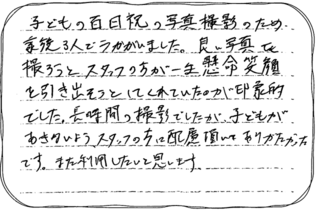 子どもの百日祝の写真撮影のため、
家族3人でうかがいました。良い写真を
撮ろうとスタッフの方が一生懸命笑顔
を引き出そうとしてくれていたのが印象的
でした。長時間の撮影でしたが、子どもが
あきないようスタッフの方に配慮頂いてありがたかった
です。また利用したいと思います。